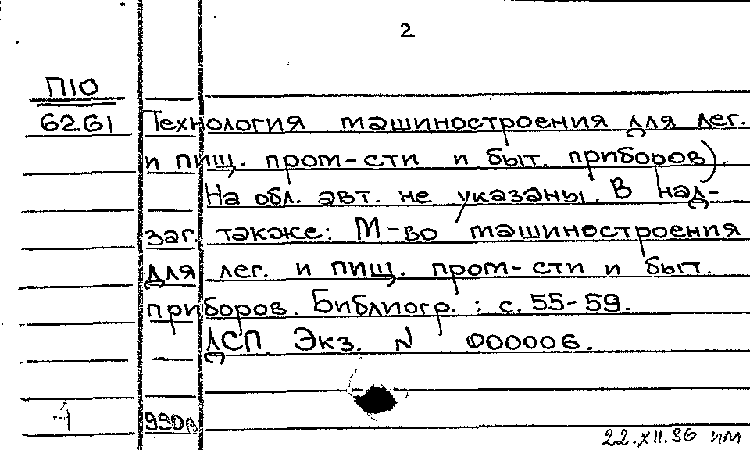 2
П10
62.61 Технология машиностроения для лег.
и пищ. пром-сти и быт. приборов).
На обл. авт. не указаны. В над-
заг. также: М-во машиностроения
для лег. и пищ. пром-сти и быт.
приборов. Библиогр.: с. 55-59.
ДСП Экз. N 000006.
22.XII.86